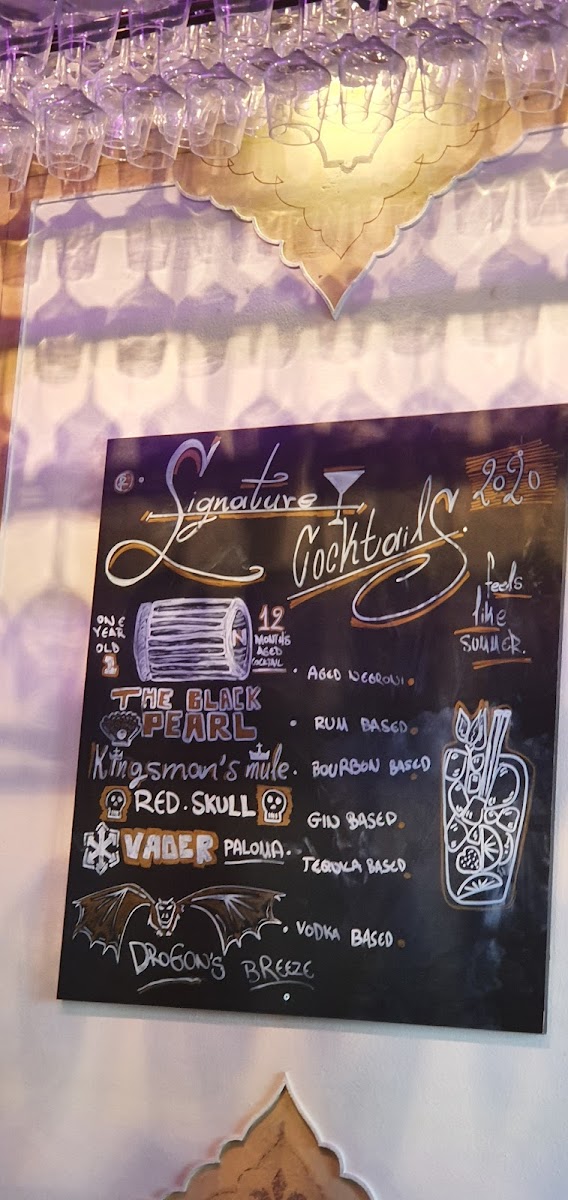 Signature
Cocktails.
2020
feels
like
summer.
ONE
YEAR
OLD
12
MONTHS
AGED
COCKTAIL
AGED NEGRONI.
THE BLACK
PEARL
RUM BASED.
Kingsman's mule.
BOURBON BASED
RED.SKULL
GIN BASED.
VADER PALOMA.
TEQUILA BASED
VODKA BASED.
DROGON'S BREEZE